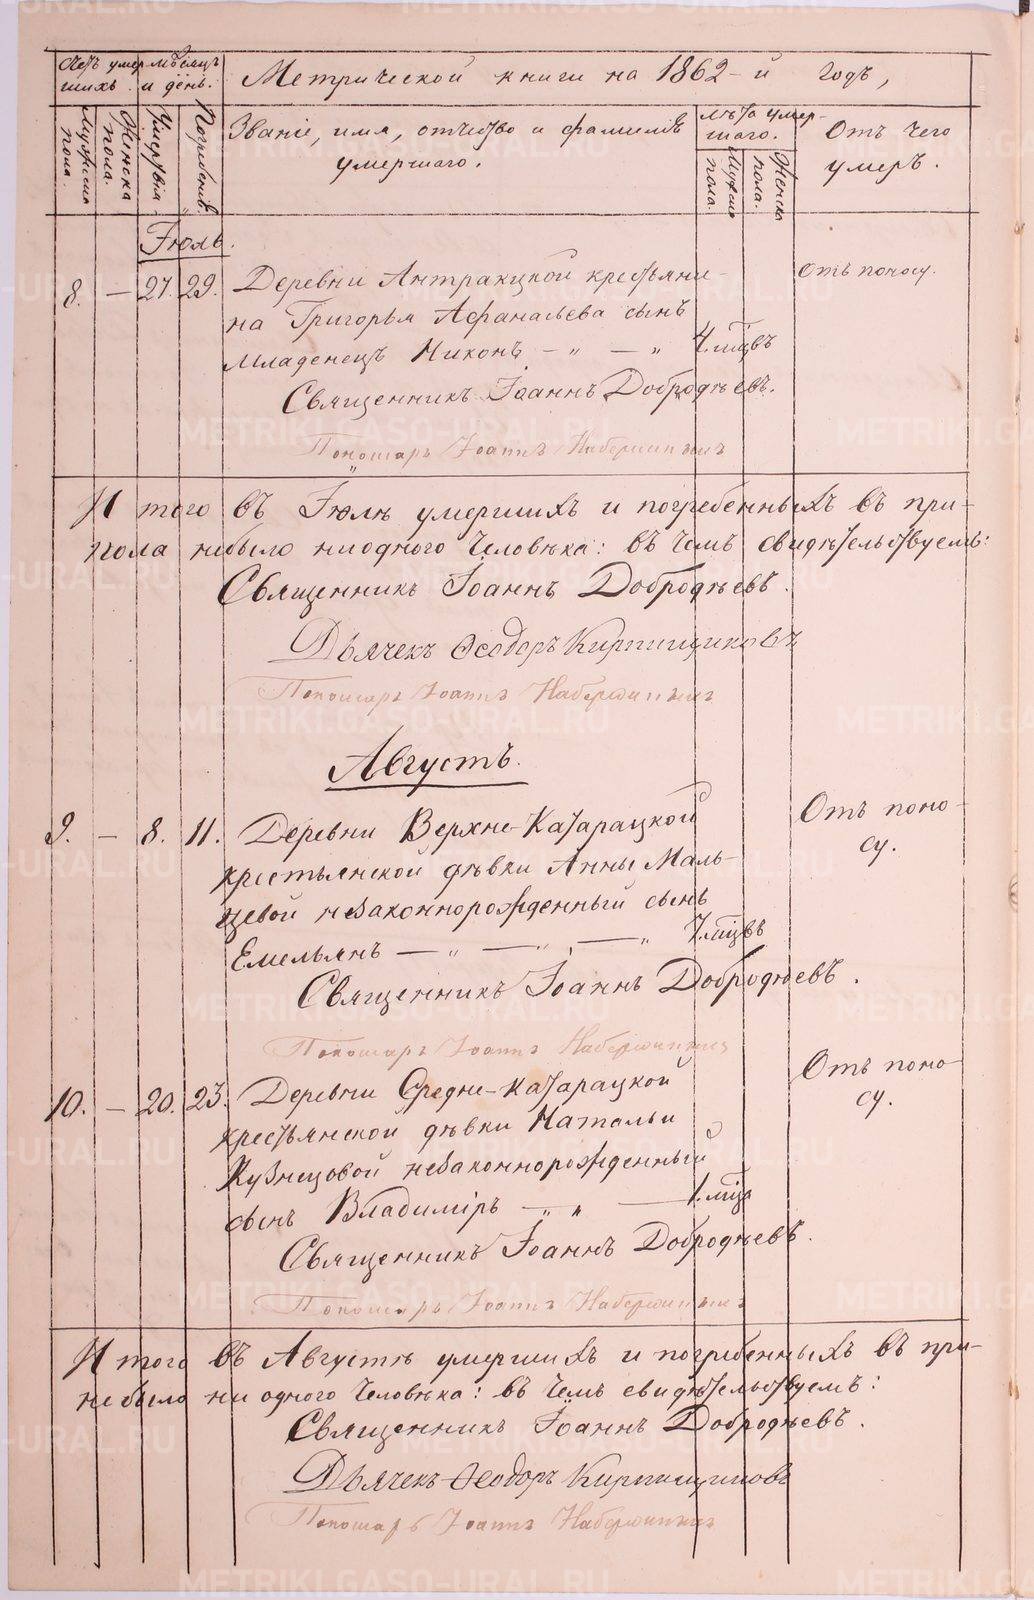 Счетъ умер- Мѣсяцъ
шихъ. и день.
Метрической книги на 1862-й годъ,
Мужеска пола.
Женска пола.
Умертвія.
Погребенія.
Званіе, имя, отчество и фамилія
умершаго.
Лѣта умер-
шаго.
Мужеска пола.
Женска пола.
Отъ чего
умеръ.
Іюль.
8. — 27. 29. Деревни Антракцкой крестьяни- отъ поносу.
на Григорья Афанасьева сынъ
младенецъ Никонъ — „ — „ 4. мѣсцвъ
Священникъ Іоаннъ Добродѣевъ.
Пономарь Іоаннъ
Итого въ Іюлѣ умершихъ и погребенныхъ въ при-
пола небыло ниодного человѣка: въ чемъ свидѣтельствуемъ:
Священникъ Іоаннъ Добродѣевъ.
Дьячекъ Ѳеодоръ Кирпищиковъ
Пономарь Іоаннъ
Августъ.
9. — 8. 11. Деревни Верхне-Катарацкой Отъ поно-
су.
крестьянской дѣвки Анны Маль-
цевой незаконнорожденный сынъ
Емельянъ — „ — „ — „ 7. мѣсцвъ
Священникъ Іоаннъ Добродѣевъ.
Пономарь Іоаннъ
10. — 20. 23. Деревни Средне-Катарацкой Отъ поно-
су.
крестьянской дѣвки Натальи
Кузнецовой незаконнорожденный
сынъ Владиміръ — „ „ — 1. мѣсц
Священникъ Іоаннъ Добродѣевъ.
Пономарь Іоаннъ
Итого въ Августѣ умершихъ и погребенныхъ въ при-
не было ни одного человѣка: въ чемъ свидѣтельствуемъ:
Священникъ Іоаннъ Добродѣевъ.
Дьячекъ Ѳеодоръ Кирпищиковъ
Пономарь Іоаннъ
METRIKI.GASO-URAL.RU